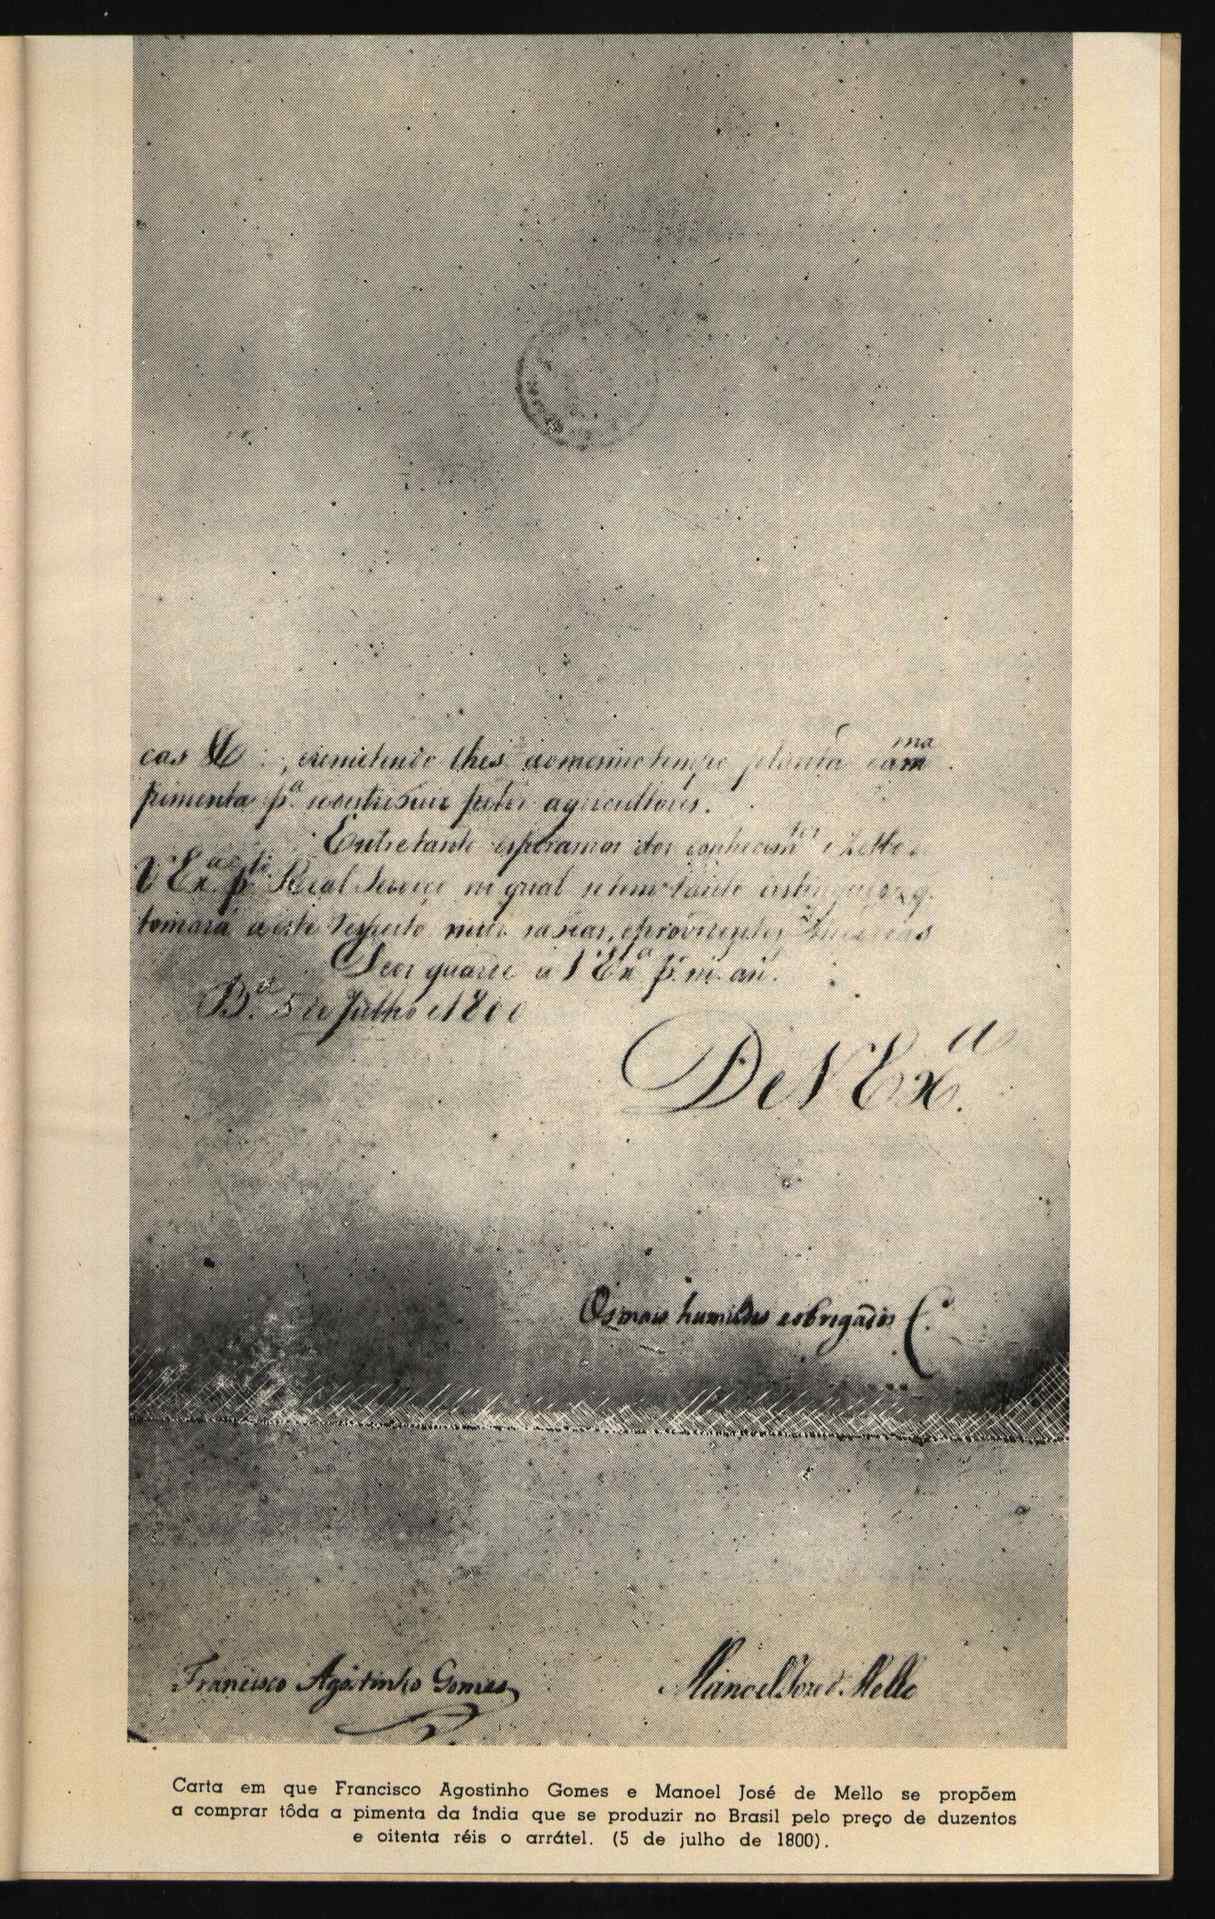 cas &c., remetendo lhes ao mesmo tempo planta da mma
pimenta pa. a
agricultores.
Entretanto esperamos dos conhecimtos e zello de
V Exa. plo Real Serviço no qual se tem tanto q.
tomará a este respeito
Deos guarde a V Exa. p. m. an.
Ba. 5 de Julho de 1800
De V Exa.
Os mais humildes e obrigados C.
Francisco Agostinho Gomes
Manoel Joze d. Mello
Carta em que Francisco Agostinho Gomes e Manoel José de Mello se propõem
a comprar tôda a pimenta da Índia que se produzir no Brasil pelo preço de duzentos
e oitenta réis o arrátel. (5 de julho de 1800).